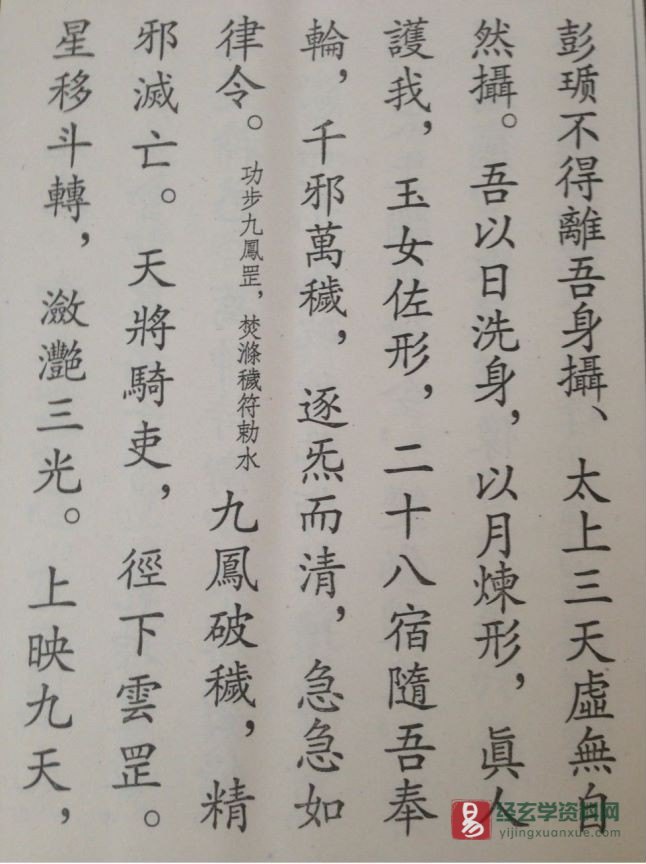 彭瑣不得離吾身攝、太上三天虛無自
然攝。吾以日洗身,以月煉形,眞人
護我,玉女佐形,二十八宿隨吾奉
輪,千邪萬穢,逐炁而清,急急如
律令。功步九鳳罡,焚滌穢符勅水九鳳破穢,精
邪滅亡。天將騎吏,徑下雲罡。
星移斗轉,瀲灧三光。上映九天,
易 经玄学资料网
yijingxuanxue.com